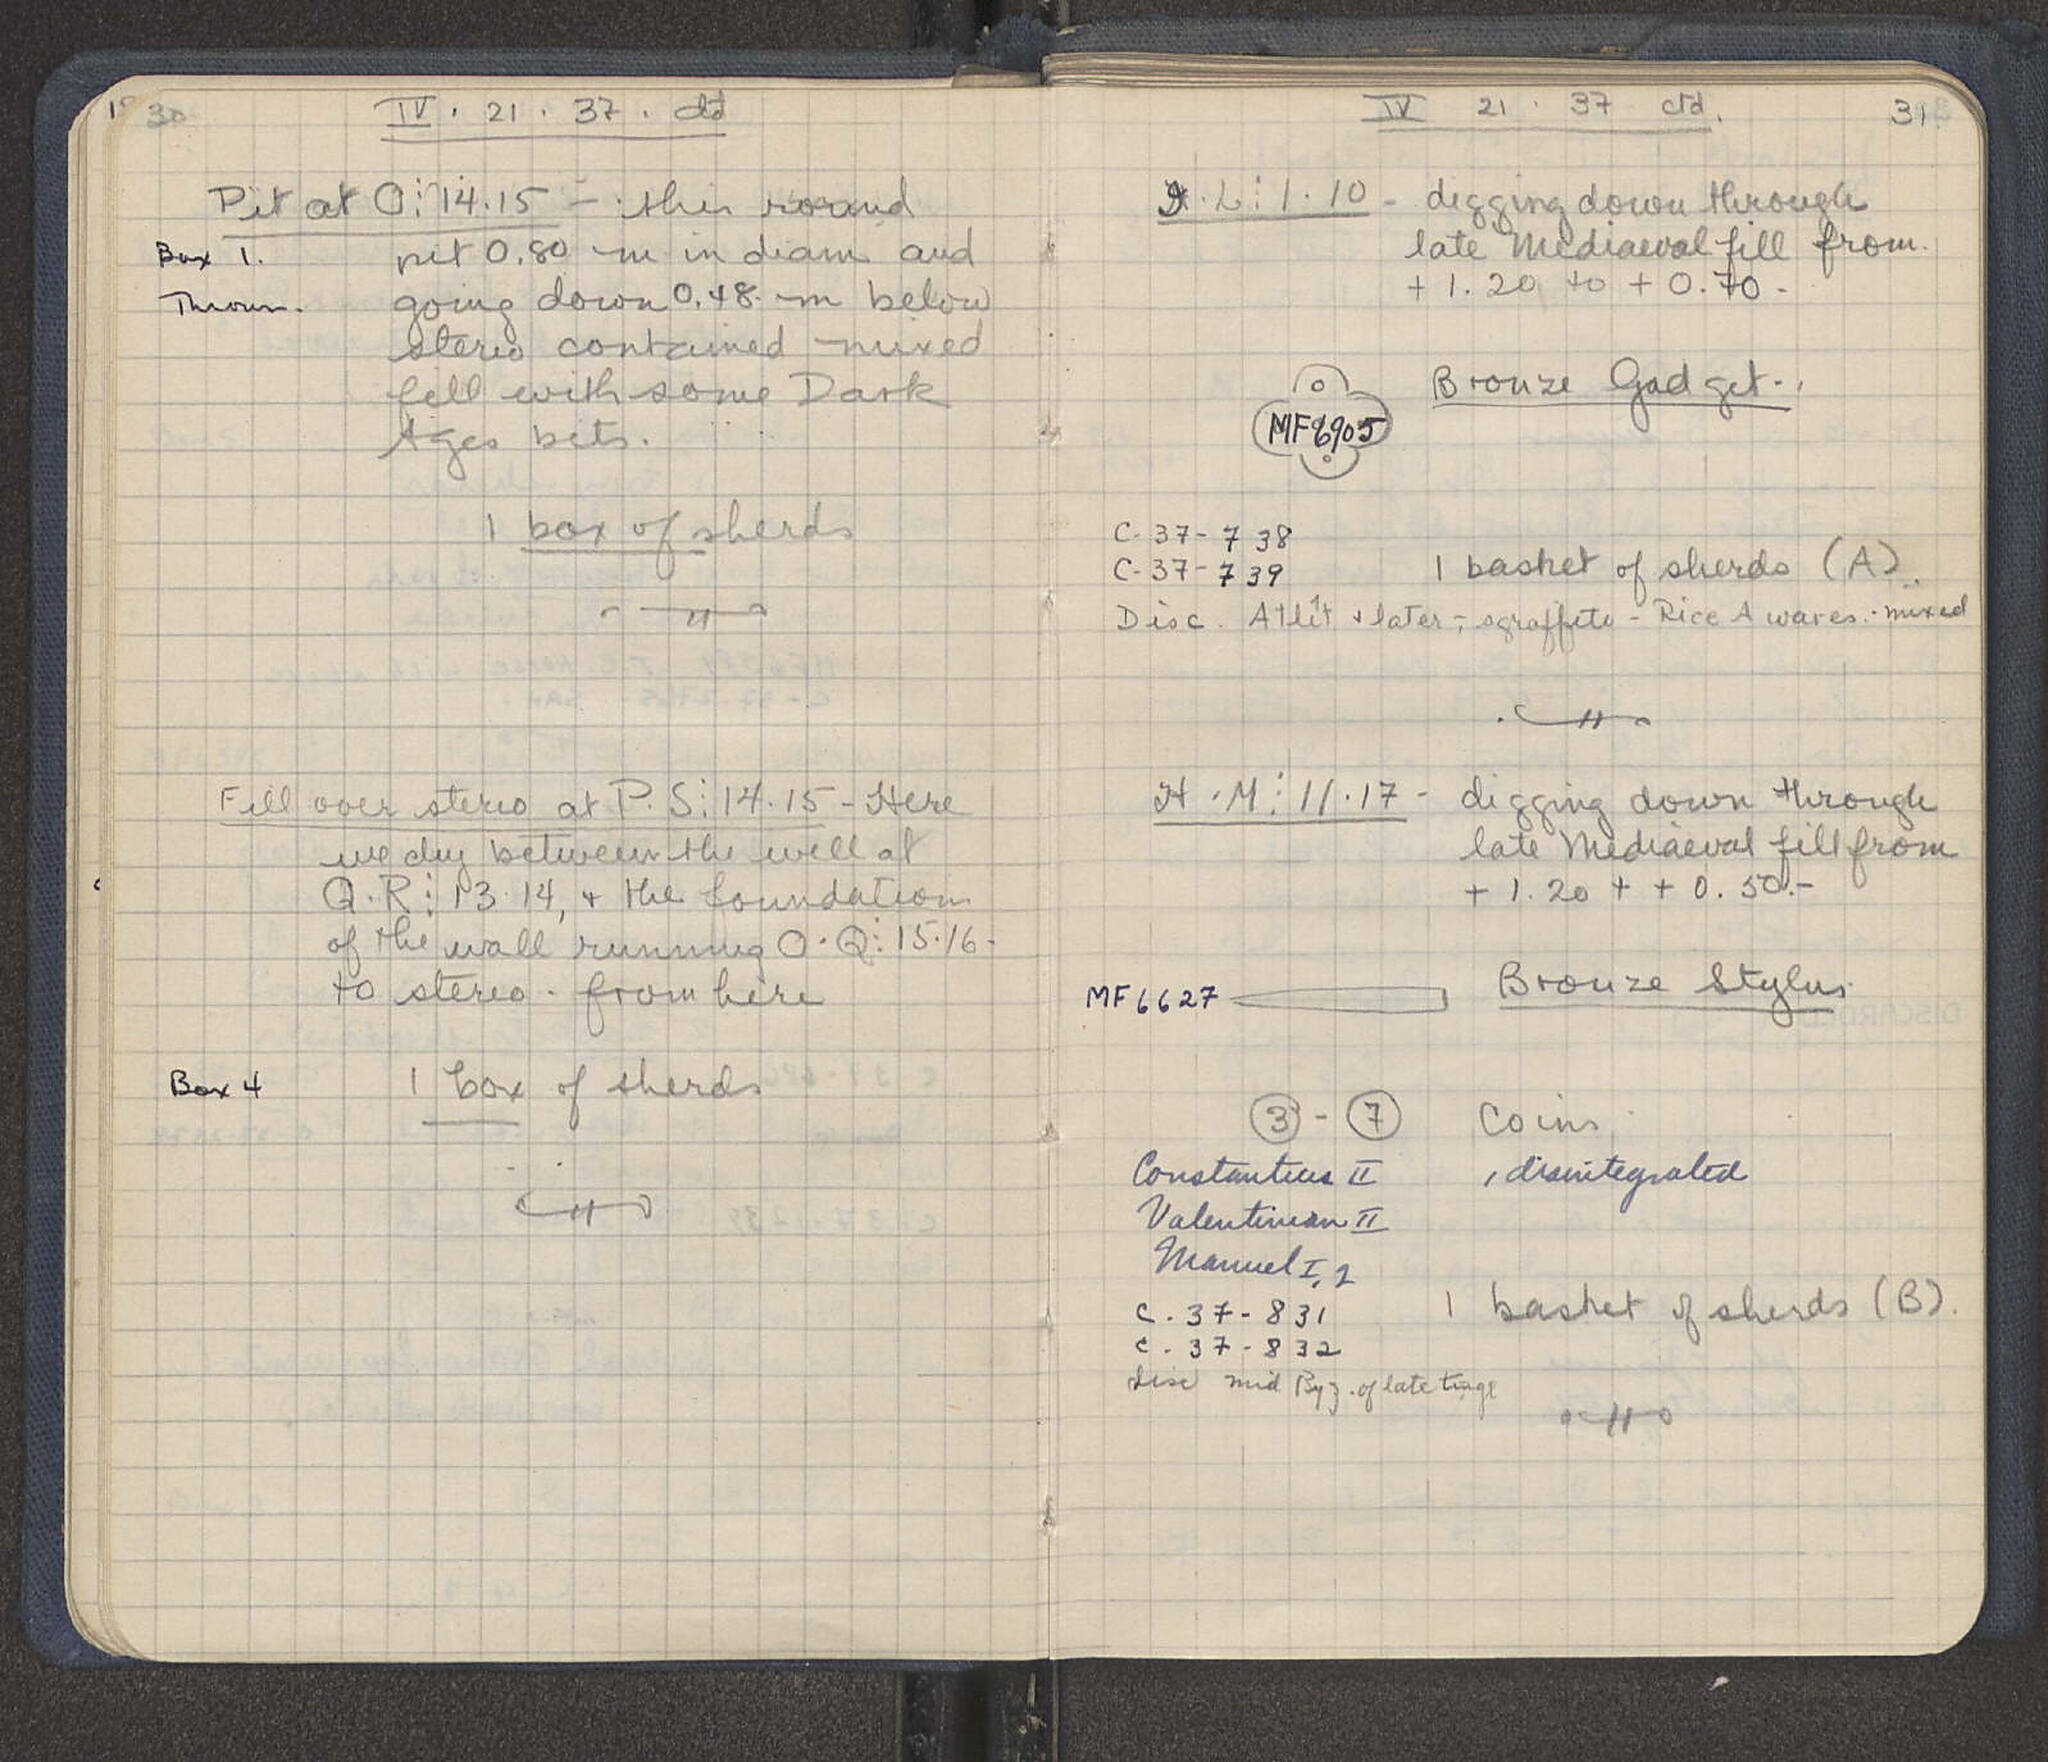 30
IV . 21 . 37 . ctd
Pit at O:14.15 - this round
Box 1. pit 0.80 m in diam and
Thrown. going down 0.48 m below
stereo contained mixed
fill with some Dark
Ages bits.
1 box of sherds
Fill over stereo at P.S:14.15 - Here
we dug between the well at
Q.R:13.14, + the foundation
of the wall running O.Q:15.16 -
to stereo - from here
Box 4 1 box of sherds
IV 21 . 37 ctd. 31
L:1.10 - digging down through
late Mediaeval fill from
+ 1.20 to + 0.70 -
Bronze Gadget -
MF6905
C-37-738
C-37-739 1 basket of sherds (A).
Disc. Atlit + later - sgraffito - Rice A wares - mixed
H.M:11.17 - digging down through
late Mediaeval fill from
+ 1.20 + + 0.50 -
MF6627 Bronze Stylus
3 - 7 Coins
Constantius II 1 disintegrated
Valentinian II
Manuel I, 2
C-37-831 1 basket of sherds (B).
C-37-832
Disc mid Byz. of late